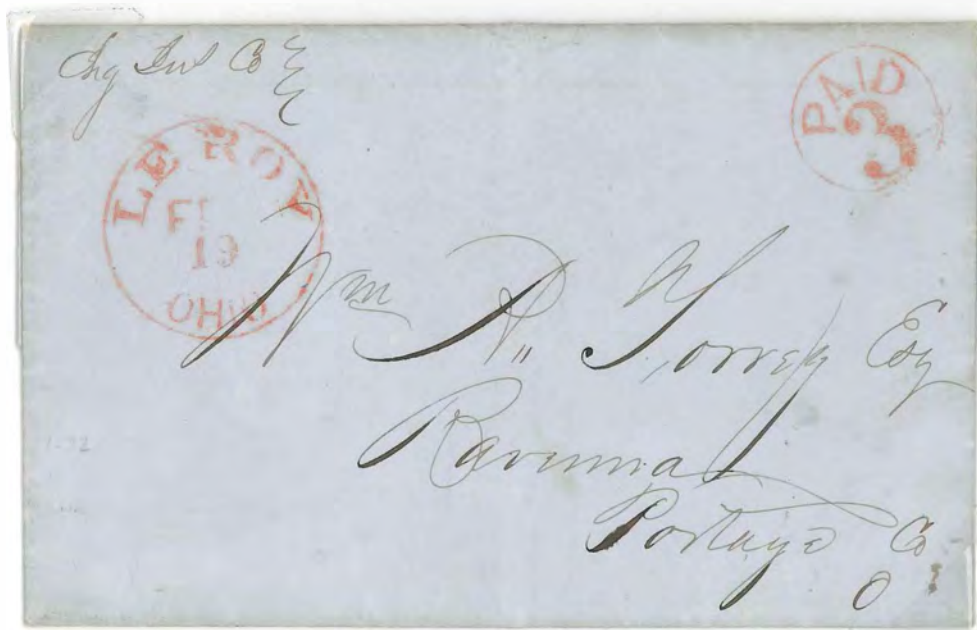 Ins Co
PAID
3
LE ROY
19
OHIO
Wm R. Torrey Esq
Ravenna
Portage Co
O